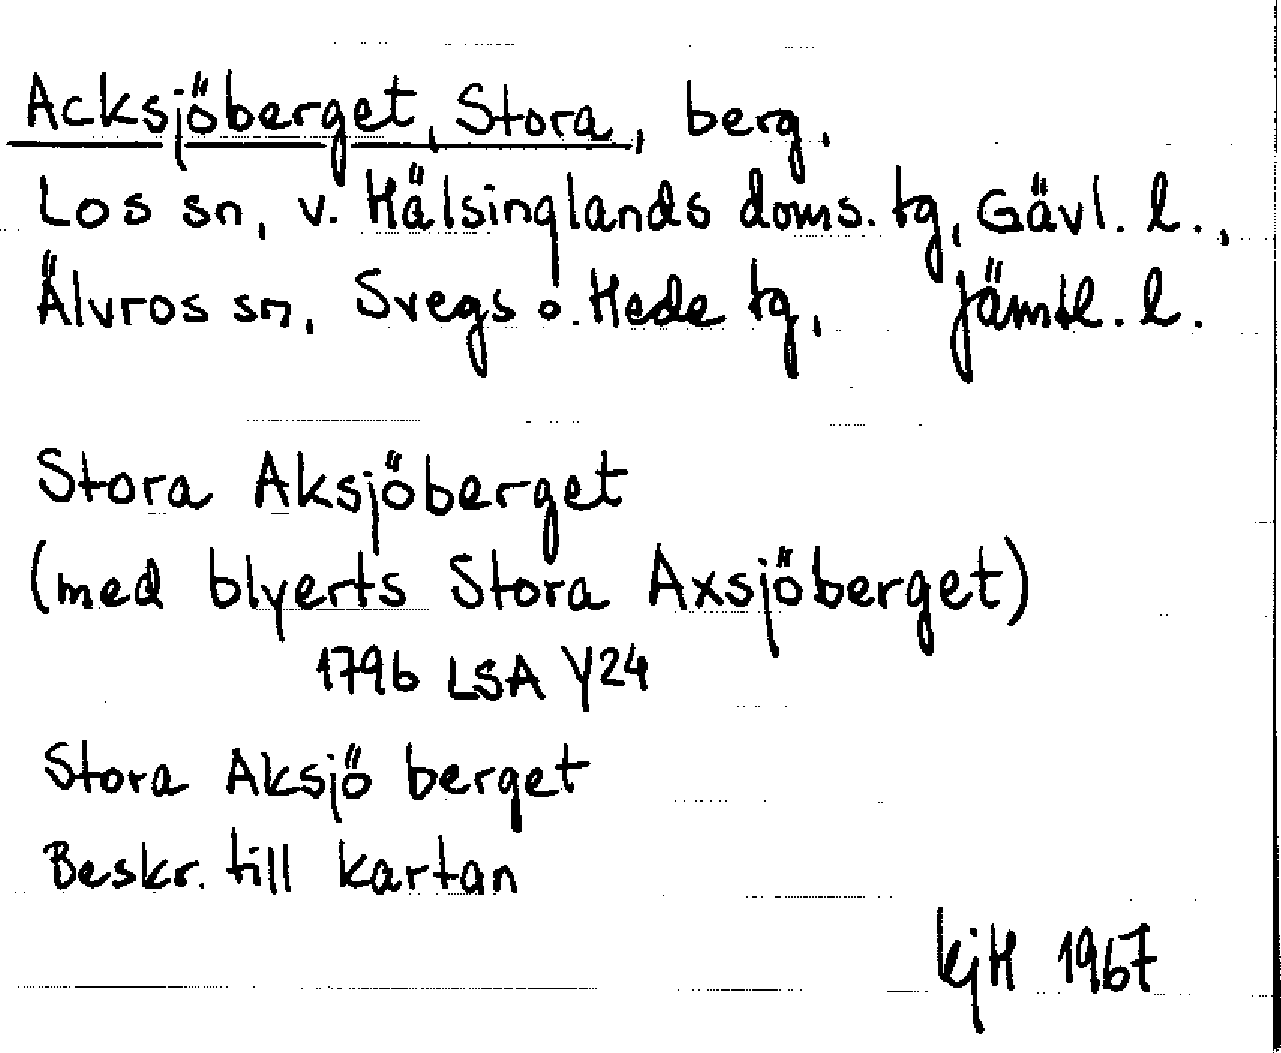 Acksjöberget, Stora, berg.
Los sn, v. Hälsinglands doms. tg, Gävl. l.,
Älvros sn, Svegs o. Hede tg, Jämtl. l.
Stora Aksjöberget
(med blyerts Stora Axsjöberget)
1796 LSA Y24
Stora Aksjö berget
Beskr. till kartan
KjH 1967